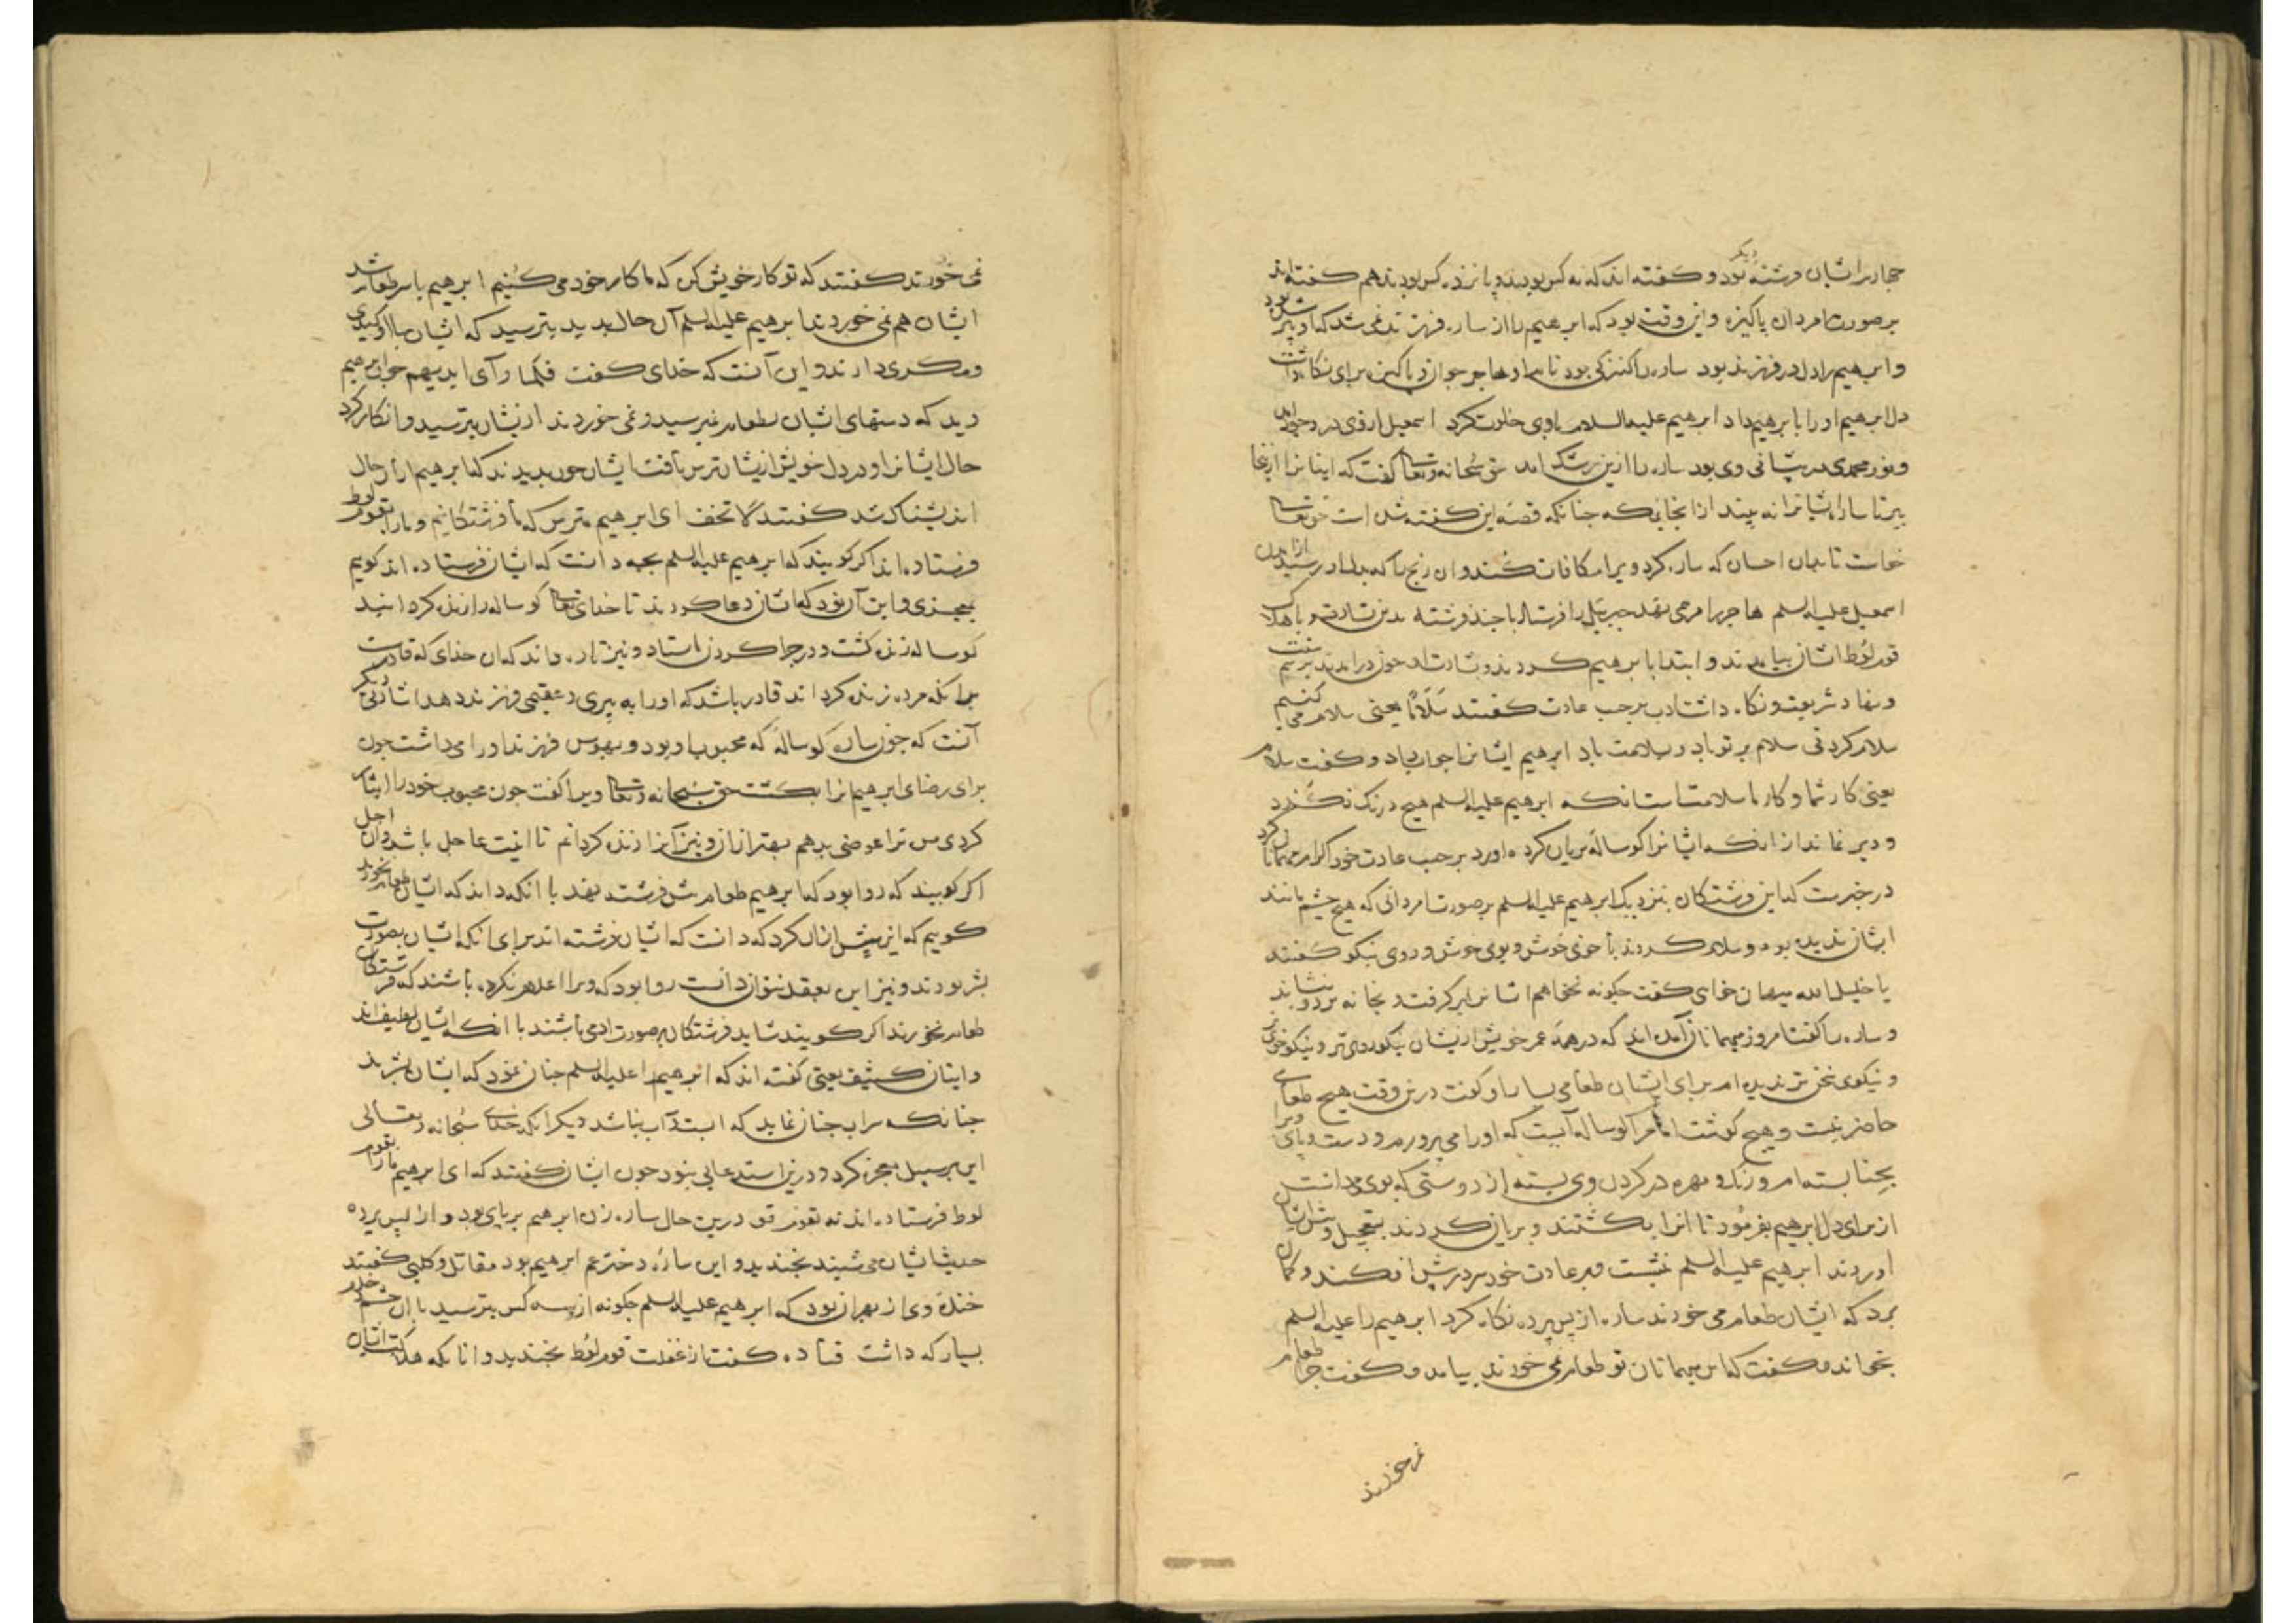 چهارم ایشان فرشته دیگر بود و کفته اند که نه کس بودند و یانزده کس بودند هم کفته اند
بر صورت امردان پاکیزه و این وقت بود که ابرهیم را از ساره فرزند نمی شد که او پیر شده بود
و ابرهیم را دل در فرزند بود ساره را کنیزکی بود نام او هاجر جوان و پاکیزه برای نکاه داشت
دل ابرهیم او را بابرهیم داد ابرهیم علیه السلام باوی خلوت کرد اسمعیل از وی در وجود آمد
و نور محمدی در پیشانی وی بود ساره را ازین رشک آمد حق سبحانه وتعالی کفت که اینانرا ازینجا
ببر تا ساره ایشانرا نه بیند از انجایی که جنانکه قصه این کفته شده است حق تعالی
خواست تا بدان احسان که ساره کرد ویرا مکافات کند و ان رنج که بدل او رسید از آمدن
اسمعیل علیه السلم هاجر را مرهمی نهد جبرئیل را فرستاد با جند فرشته بدین بشارت و باهلاک
قوم لوط ایشان بیامدند و ابتدا بابرهیم کردند و بشارت او جون درامدند برسم سنت
و نهاد شریعت و نکاه داشت ادب برحسب عادت کفتند سَلَامًا یعنی سلام می کنیم
سلام کردنی سلام بر تو باد و سلامت باد ابرهیم ایشانرا جواب داد و کفت سلام
یعنی کار شما و کار ما سلامتست انکه ابرهیم علیه السلم هیچ درنک نکرد
و دیر نماند از انکه ایشانرا کوساله بریان کرده اورد برحسب عادت خود اکرام مهمانان کرد
در خبرست که این فرشتکان بنزدیک ابرهیم علیه السلم بر صورت امردانی که هیچ چشم مانند
ایشان ندیده بود و سلام کردند با خوی خوش و بوی خوش و روی نیکو کفتند
یا خلیل الله میهمان خواهی کفت جکونه نخواهم ایشانرا برکرفت و بخانه برد و بنشاند
و ساره را کفت امروز میهمانان آمده اند که در همه عمر خویش ازیشان نیکو روی تر و نیکو خوی تر
و نیکوی سخن تر ندیده ام برای ایشان طعامی بسار او کفت درین وقت هیچ طعامی
حاضر نیست و هیچ کوشت اما مرا کوساله آیست که اورا می پرورم و دست و پای ویرا
بحنا بسته ام و زنک و مهره در کردن وی بسته از دوستی که بوی می داشت
از برای دل ابرهیم بفرمود تا انرا بکشتند و بریان کردند بتعجیل و پیش ایشان
اوردند ابرهیم علیه السلم بنشست و بر عادت خود سر در پیش افکند و کمان
برد که ایشان طعام می خورند ساره از پس پرده نکاه کرد ابرهیم را علیه السلم
بخواند و کفت که این میهمانان تو طعام نمی خورند بیامد و کفت جرا طعام
نمی خورند
نمی خورند کفتند که تو کار خویش کن که ما کار خود می کنیم ابرهیم باسر طعام شد
ایشان هم نمی خوردند ابرهیم علیه السلم آن حال بدید بترسید که ایشان با او کیدی
و مکری دارند و این آنست که خدای کفت فلما رآی ایدیهم جون ابرهیم
دید که دستهای ایشان بطعام نمیرسید و نمی خوردند ازیشان بترسید و انکار کرد
حال ایشانرا و در دل خویش ازیشان ترس یافت ایشان جون بدیدند که ابرهیم ازان حال
اندیشناک شد کفتند لا تخف ای ابرهیم مترس که ما فرشتکانیم و مارا بقوم لوط
فرستاده اند اکر کویند که ابرهیم علیه السلم بجه دانست که ایشان فرستاده اند کویم
بمعجزی و این آن بود که ایشان دعا کردند تا خدای تعالی کوساله را زنده کردانید
کوساله زنده کشت و در جرا کردن استاد و نیز ساره داند که ان خدای که قادرست
برانکه مرده زنده کرداند قادر باشد که اورا به پیری و عقیمی فرزند دهد اشارتی دیکر
آنست که جون ساره کوساله که محبوب او بود و بهوس فرزند اورا می داشت جون
برای رضای ابرهیم انرا بکشت حق سبحانه وتعالی ویرا کفت جون محبوب خود را ایثار
کردی من ترا عوضی بدهم بهتر ازان و نیز آنرا زنده کردانم تا اینت عاجل باشد و ان اجل
اکر کویند که روا بود که ابرهیم طعام پیش فرشته نهد با انکه داند که ایشان طعام نخورند
کویم که این پیش ازان کرد که دانست که ایشان فرشته اند برای انکه ایشان بصورت
بشر بودند و نیز این بعقل نتوان دانست روا بود که ویرا اعلام نکرده باشند که فرشتکان
طعام نخورند اکر کویند شاید فرشتکان بر صورت ادمی باشند با انکه ایشان لطیف اند
و اینان کثیف یعنی کفته اند که ابرهیم را علیه السلم جنان نمود که ایشان بشرند
جنانکه سراب جنان نماید که ابست و آب نباشد دیکر انکه خدای سبحانه وتعالی
این بر سبیل معجزه کرد و درین استدعایی نبود جون ایشان کفتند که ای ابرهیم مارا بقوم
لوط فرستاده اند نه بقوم تو درین حال ساره زن ابرهیم بر پای بود و از پس پرده
حدیث ایشان می شنید بخندید و این ساره دختر عم ابرهیم بود مقاتل و کلبی کفتند
خنده وی از بهر ان بود که ابرهیم علیه السلم جکونه از سه کس بترسید با ان حشم و خدم
بسیار که داشت قتاده کفت از غفلت قوم لوط بخندید و انکه هلاکت ایشان